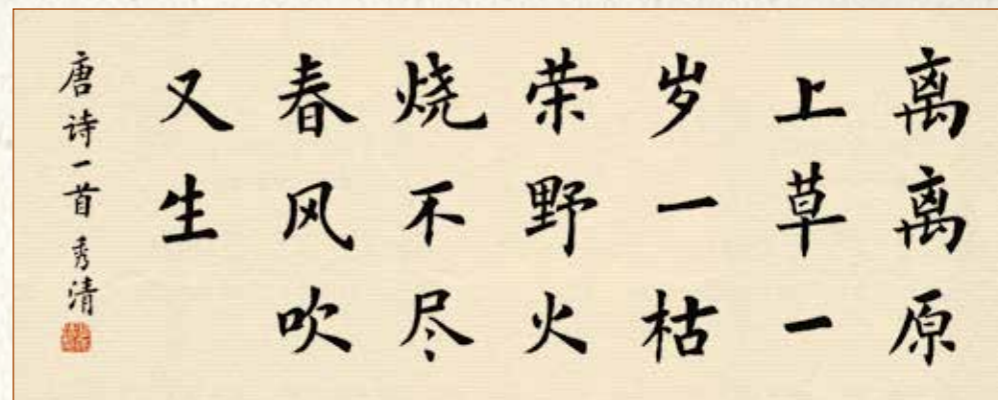 离离原
上草一
岁一枯
荣野火
烧不尽
春风吹
又生
唐诗一首 秀清